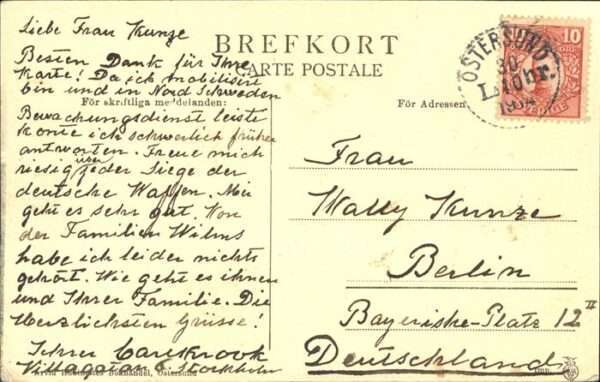 Liebe Frau Kunze
Besten Dank für Ihre
Karte! Da ich mobilisirt
bin und in Nord Schweden
Bewachungsdienst leiste
konte ich schwerlich früher
antworten. Freue mich
riesig über jeder Siege der
deutsche Waffen. Mir
geht es sehr gut. Von
der Familien Wilms
habe ich leider nichts
gehört. Wie geht es ihnen
und Ihrer Familie. Die
Herzlichsten Grüsse!
Ihrer
Stockholm
BREFKORT
CARTE POSTALE
För skriftliga meddelanden:
För Adressen
ÖSTERSUND
30
10
Frau
Wally Kunze
Berlin
Bayerische-Platz 12 II
Deutschland
Östersund